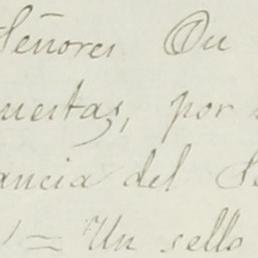 Señores Du
uestas, por
ancia del Se
= Un sello